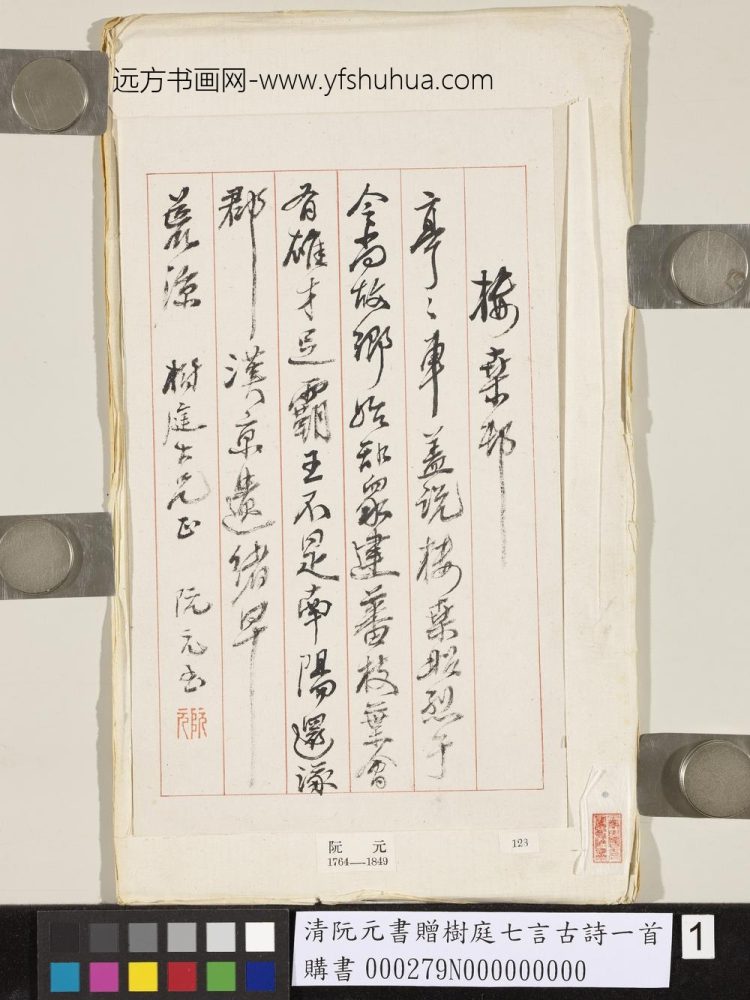 远方书画网-www.yfshuhua.com
楼桑邨
亭〻車蓋說樓桑昭烈于
今尚故鄉始知眾建蕃枝葉會
有雄才足霸王不是南陽還涿
郡漢京遺緒早
荒涼 樹庭大兄正 阮元書
阮元
阮 元
1764—1849
123
清阮元書贈樹庭七言古詩一首
購書 000279N000000000
1